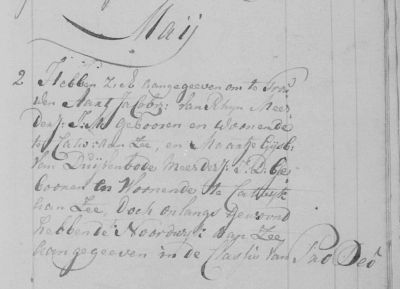 Maij
2 Hebben zich aangegeeven om te Trou
wen Aart Jacobz: van Rhyn Meer
derj: J:M: gebooren en woonende
te Catw: aan Zee, en Maartje Gijsb:
van Duijvenbode Meerderj: J:D: ge
booren en Woonende te Catwyk
aan Zee, doch onlangs gewoond
hebbende Noordwy: aan Zee
aangegeeven in de Classis van Pro Deo